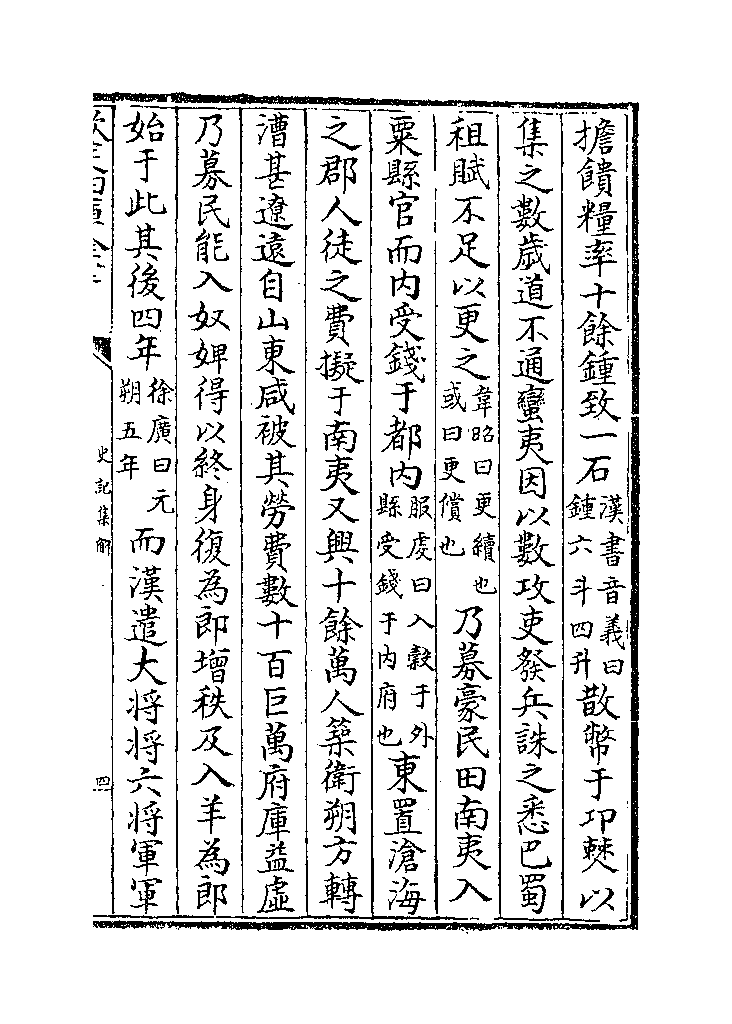 擔饋糧率十餘鍾致一石漢書音義曰鍾六斗四升散幣于卭僰以
集之數歲道不通蠻夷因以數攻吏發兵誅之悉巴蜀
租賦不足以更之韋昭曰更續也或曰更償也乃募豪民田南夷入
粟縣官而内受錢于都内服䖍曰入穀于外縣受錢于内府也東置滄海
之郡人徒之費擬于南夷又興十餘萬人築衛朔方轉
漕甚遼遠自山東咸被其勞費數十百巨萬府庫益虛
乃募民能入奴婢得以終身復為郎增秩及入羊為郎
始于此其後四年徐廣曰元朔五年而漢遣大將將六將軍軍
史記集解
四